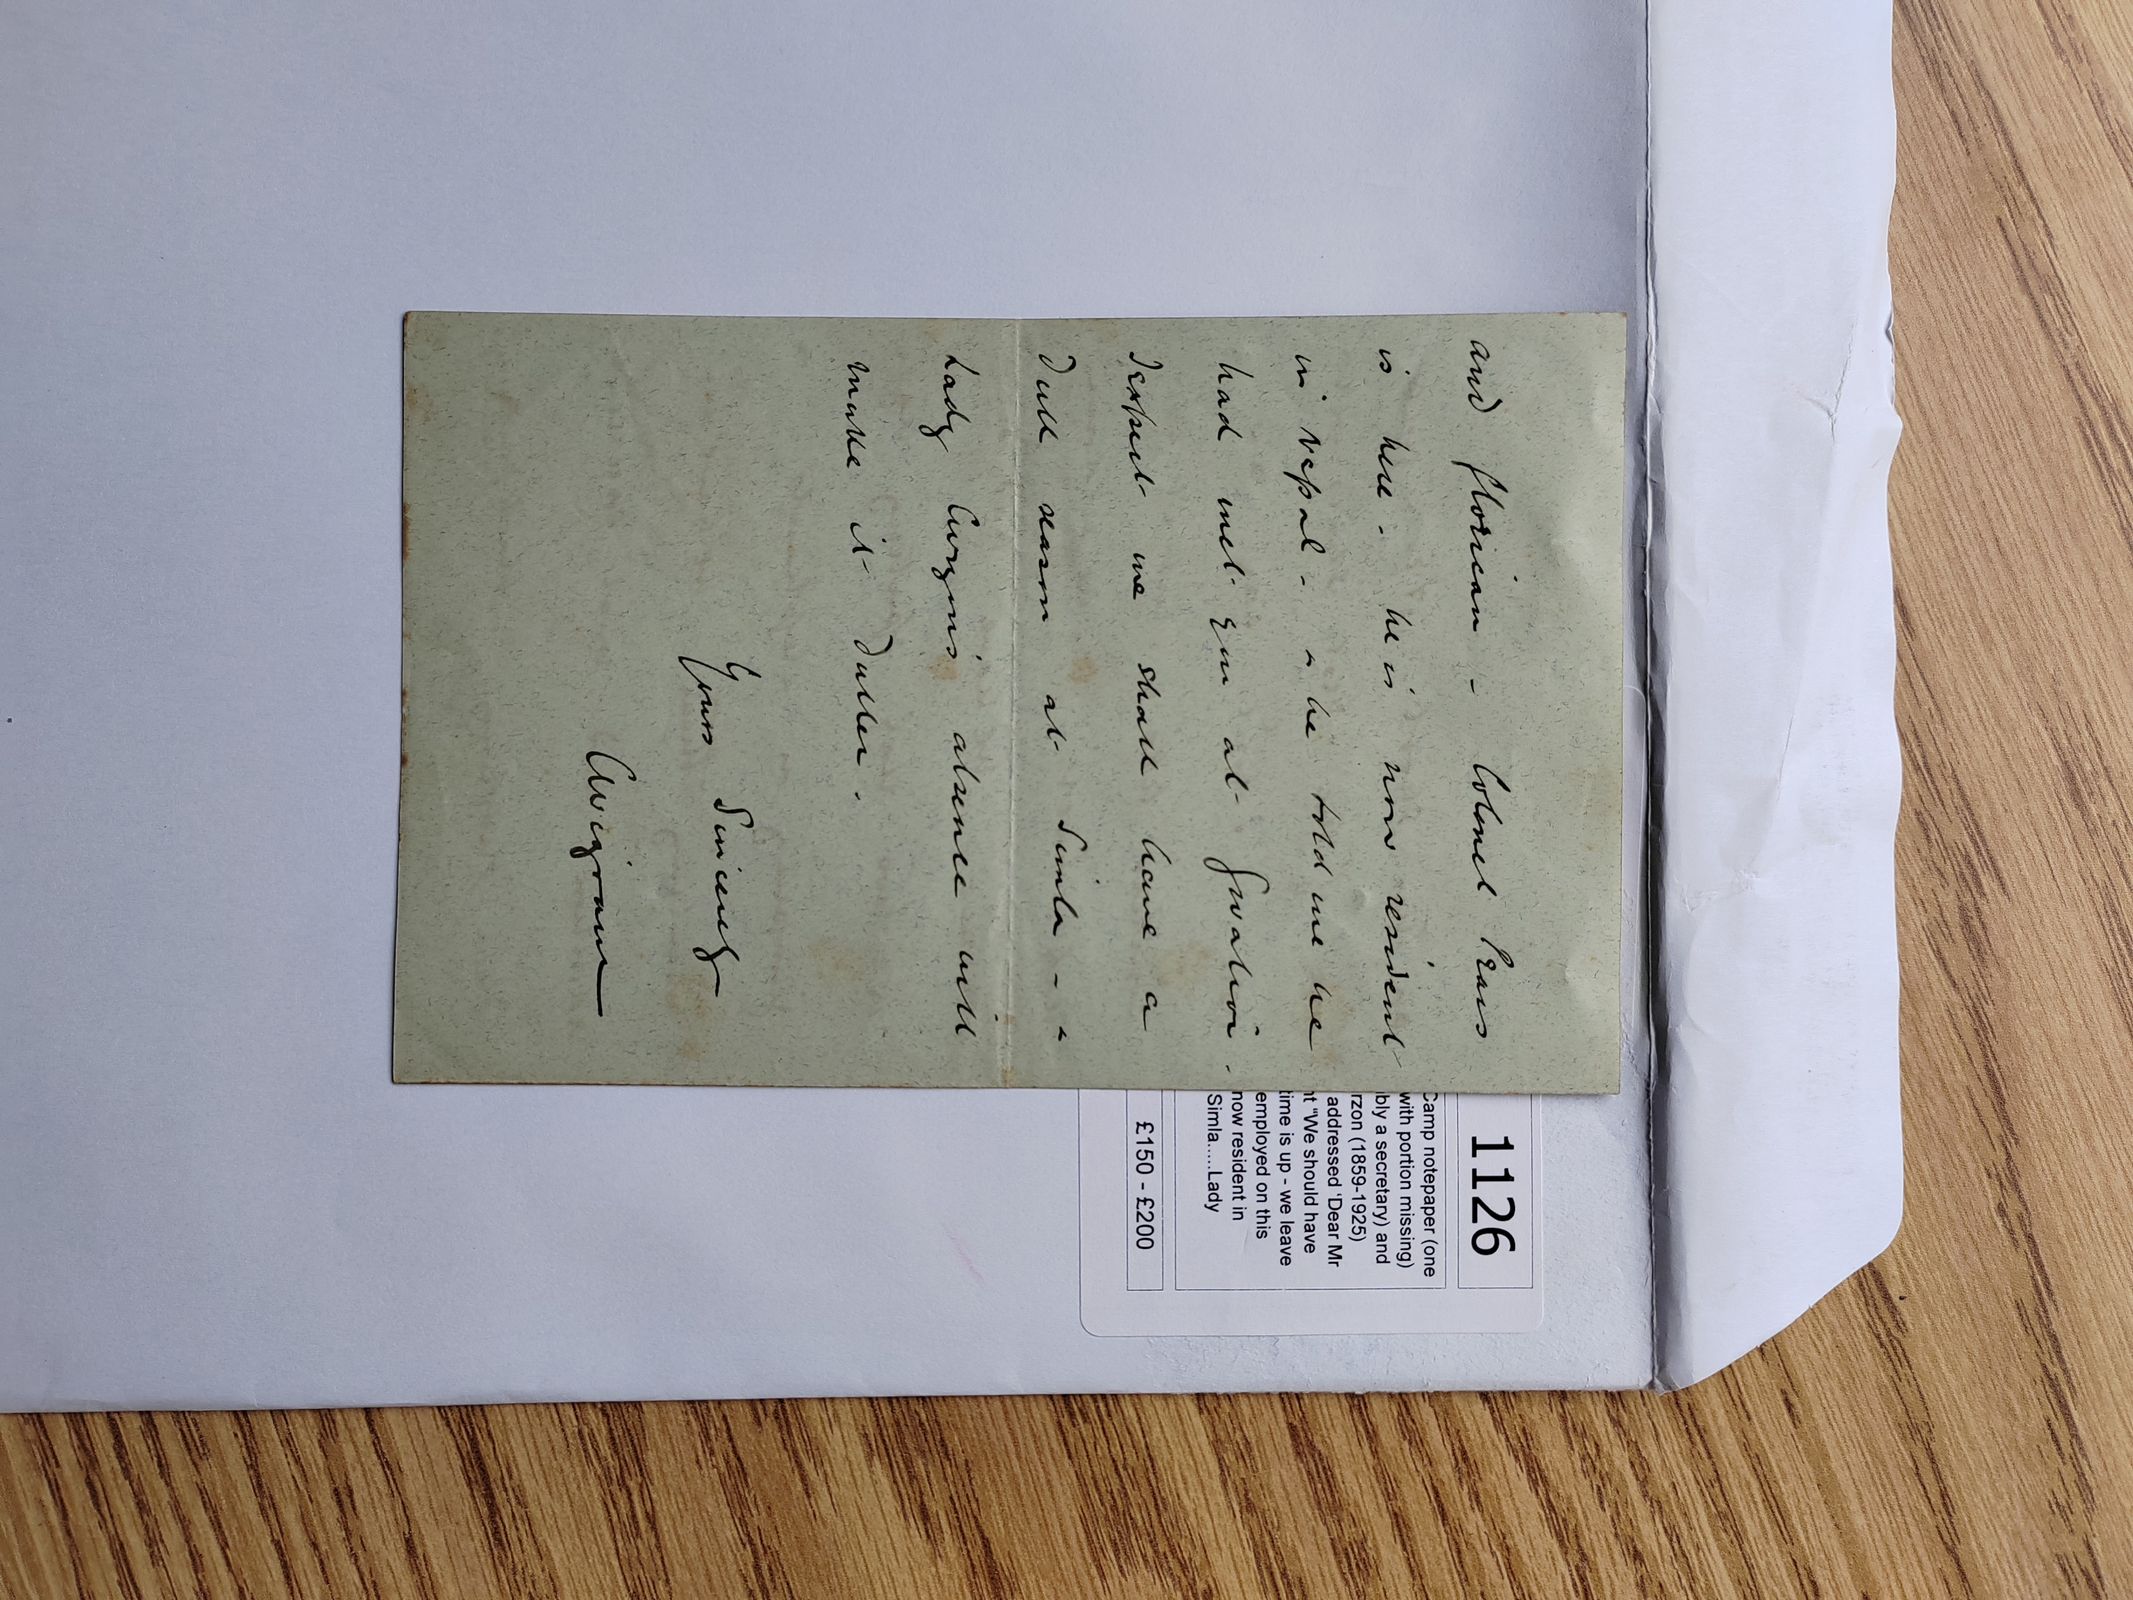 and florican - Colonel Pears
is here - he is now resident
in Nepal - & he told me he
had met you at Gwalior -
I expect we shall have a
dull season at Simla - &
Lady Curzon's absence will
make it duller.
Yours sincerely
CWigram
1126
Camp notepaper (one
with portion missing)
bly a secretary) and
rzon (1859-1925)
addressed 'Dear Mr
nt "We should have
time is up - we leave
employed on this
now resident in
Simla.....Lady
£150 - £200